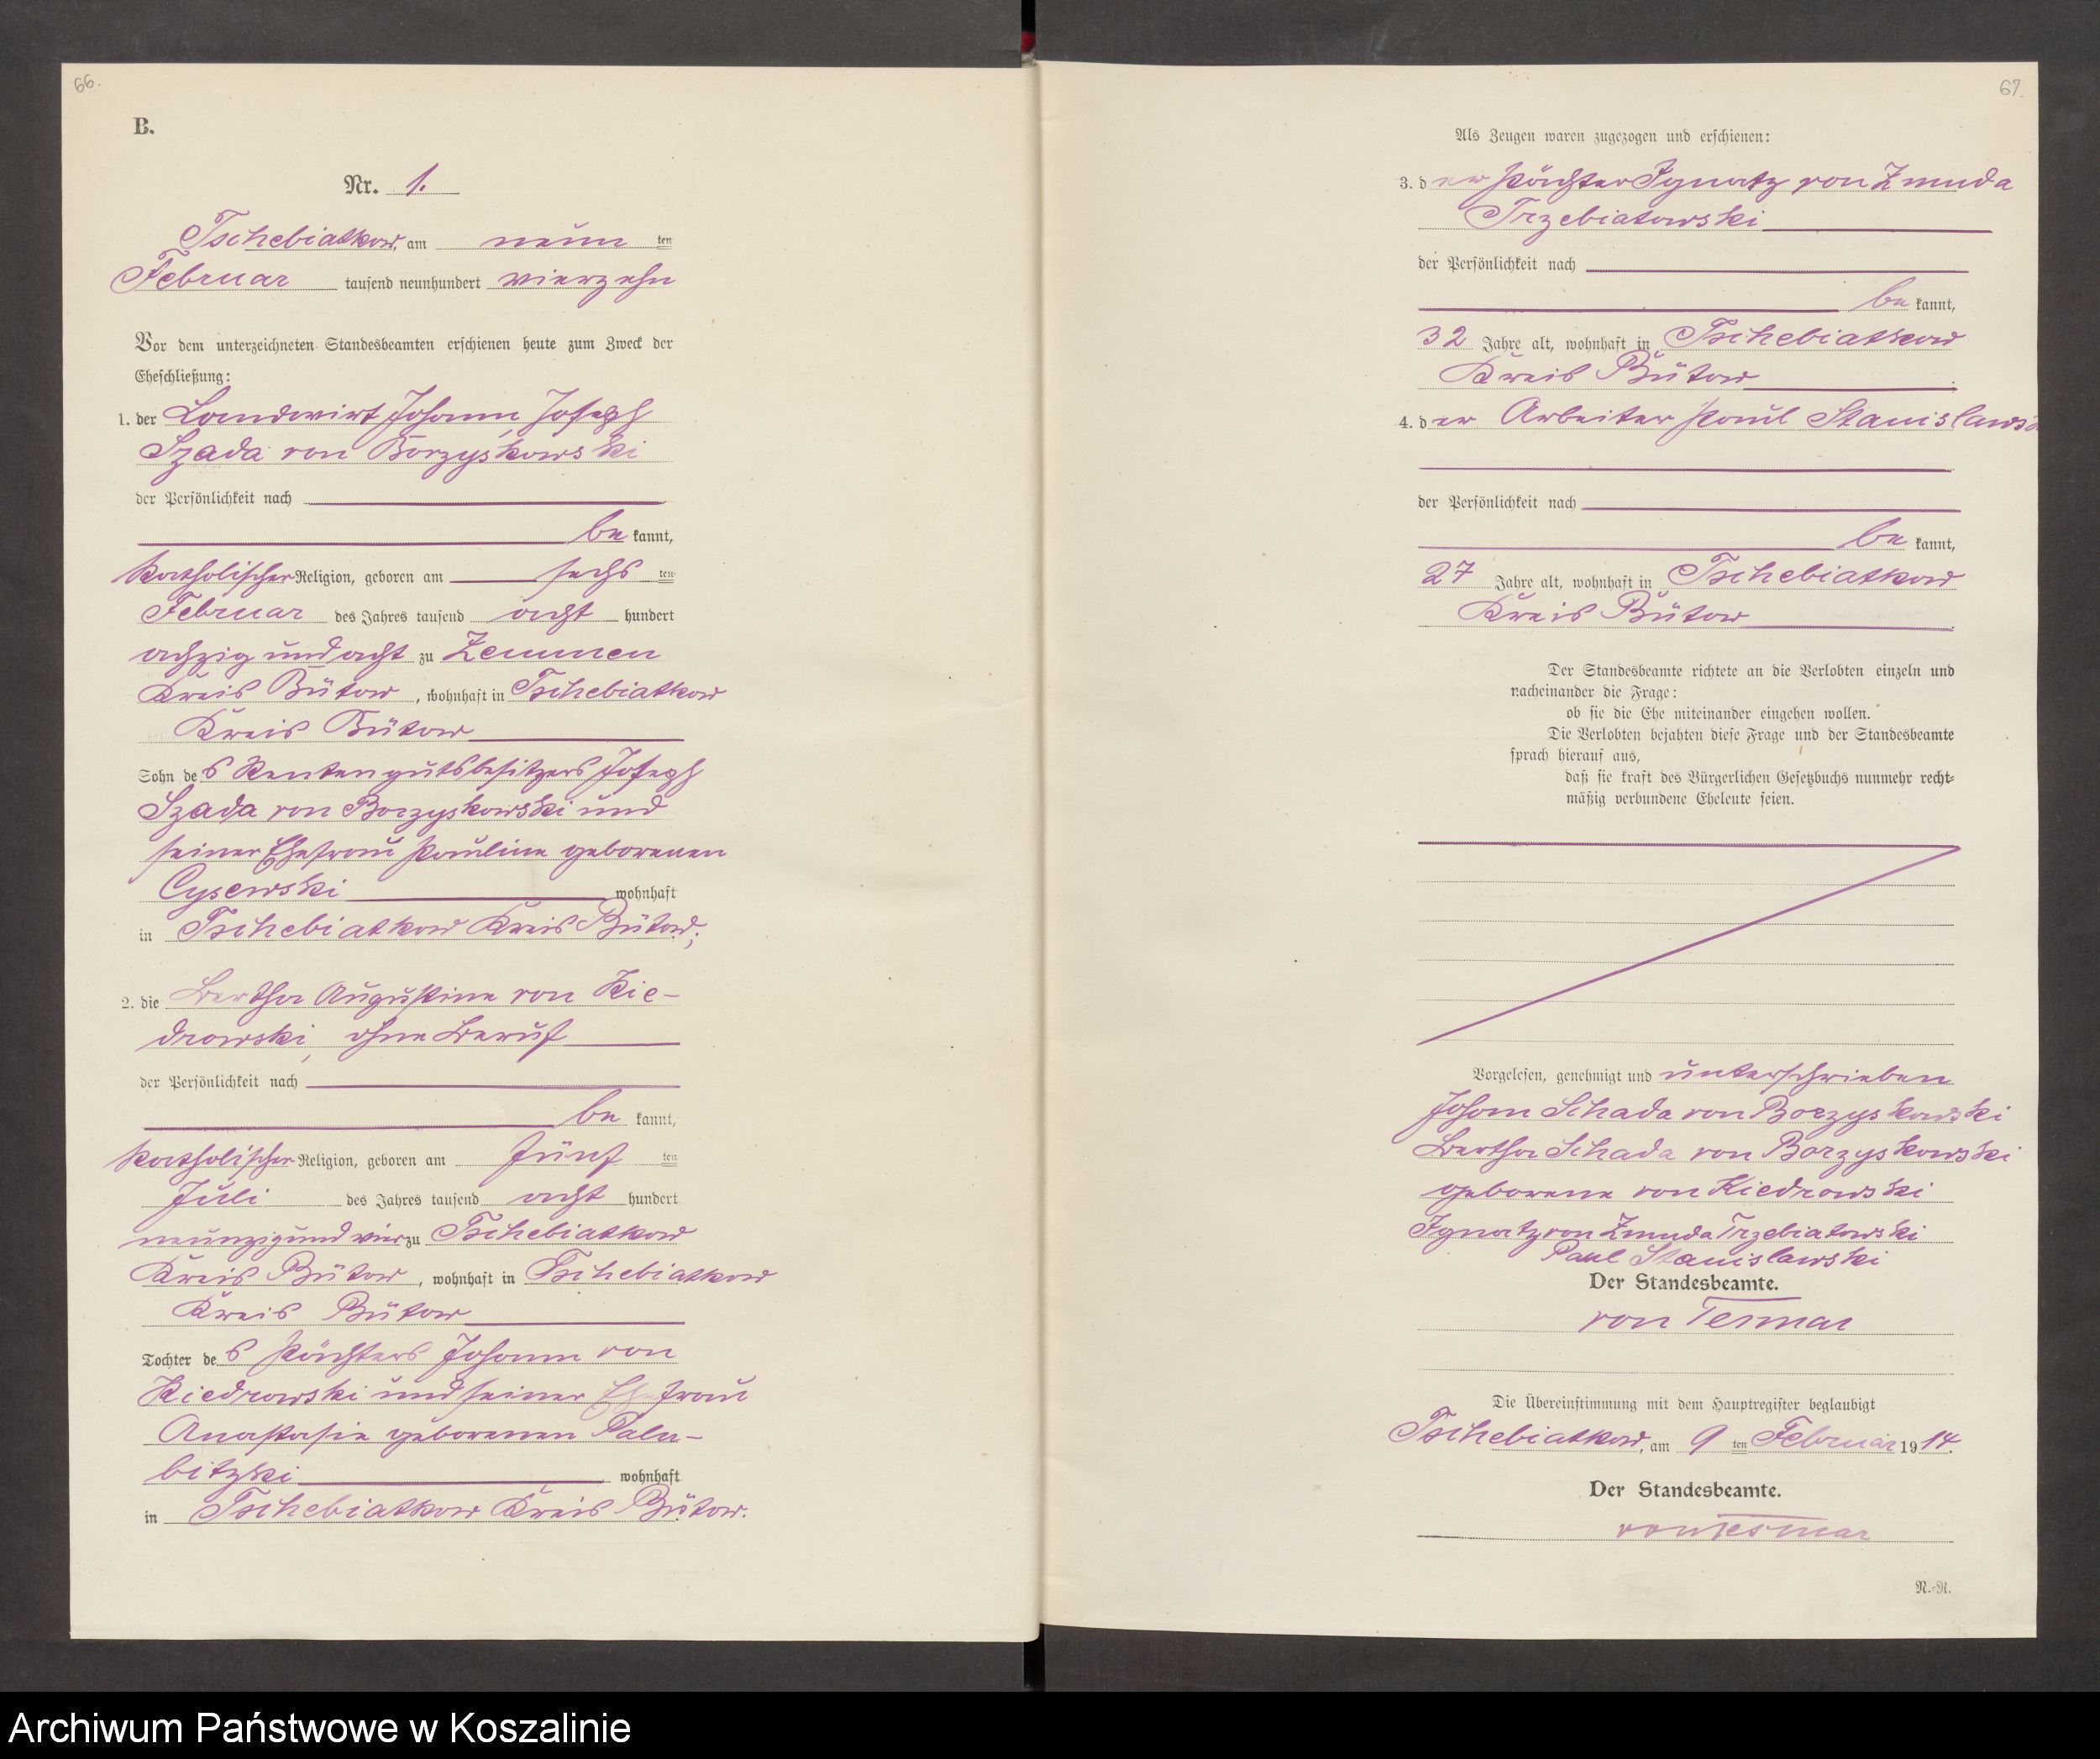 66.
B.
Nr. 1.
Tschebiatkow, am neun ten
Februar tausend neunhundert vierzehn
Vor dem unterzeichneten Standesbeamten erschienen heute zum Zweck der
Eheschließung:
1. der Landwirt Johann Joseph
Szada von Borzyskowski
der Persönlichkeit nach
be kannt,
katholischer Religion, geboren am sechs ten
Februar des Jahres tausend acht hundert
achzig und acht zu Zemmen
Kreis Bütow, wohnhaft in Tschebiatkow
Kreis Bütow
Sohn des Rentengutsbesitzers Joseph
Szada von Borzyskowski und
seiner Ehefrau Pauline geborenen
Cysewski wohnhaft
in Tschebiatkow Kreis Bütow;
2. die Bertha Augustine von Kie-
drowski, ohne Beruf
der Persönlichkeit nach
be kannt,
katholischer Religion, geboren am fünf ten
Juli des Jahres tausend acht hundert
neunzig und vier zu Tschebiatkow
Kreis Bütow, wohnhaft in Tschebiatkow
Kreis Bütow
Tochter des Pächters Johann von
Kiedrowski und seiner Ehefrau
Anastasia geborenen Palu-
bitzki wohnhaft
in Tschebiatkow Kreis Bütow.
67.
Als Zeugen waren zugezogen und erschienen:
3. der Pächter Ignatz von Zmuda
Trzebiatowski
der Persönlichkeit nach
be kannt,
32 Jahre alt, wohnhaft in Tschebiatkow
Kreis Bütow.
4. der Arbeiter Paul Stanislawsk
der Persönlichkeit nach
be kannt,
27 Jahre alt, wohnhaft in Tschebiatkow
Kreis Bütow.
Der Standesbeamte richtete an die Verlobten einzeln und
nacheinander die Frage:
ob sie die Ehe miteinander eingehen wollen.
Die Verlobten bejahten diese Frage und der Standesbeamte
sprach hierauf aus,
daß sie kraft des Bürgerlichen Gesetzbuchs nunmehr recht-
mäßig verbundene Eheleute seien.
Vorgelesen, genehmigt und unterschrieben
Johann Schada von Borzyskowski
Bertha Schada von Borzyskowski
geborene von Kiedrowski
Ignatz von Zmuda Trzebiatowski
Paul Stanislawski
Der Standesbeamte.
von Tesmar
Die Übereinstimmung mit dem Hauptregister beglaubigt
Tschebiatkow, am 9 ten Februar 1914.
Der Standesbeamte.
von Tesmar
N.-R.
Archiwum Państwowe w Koszalinie